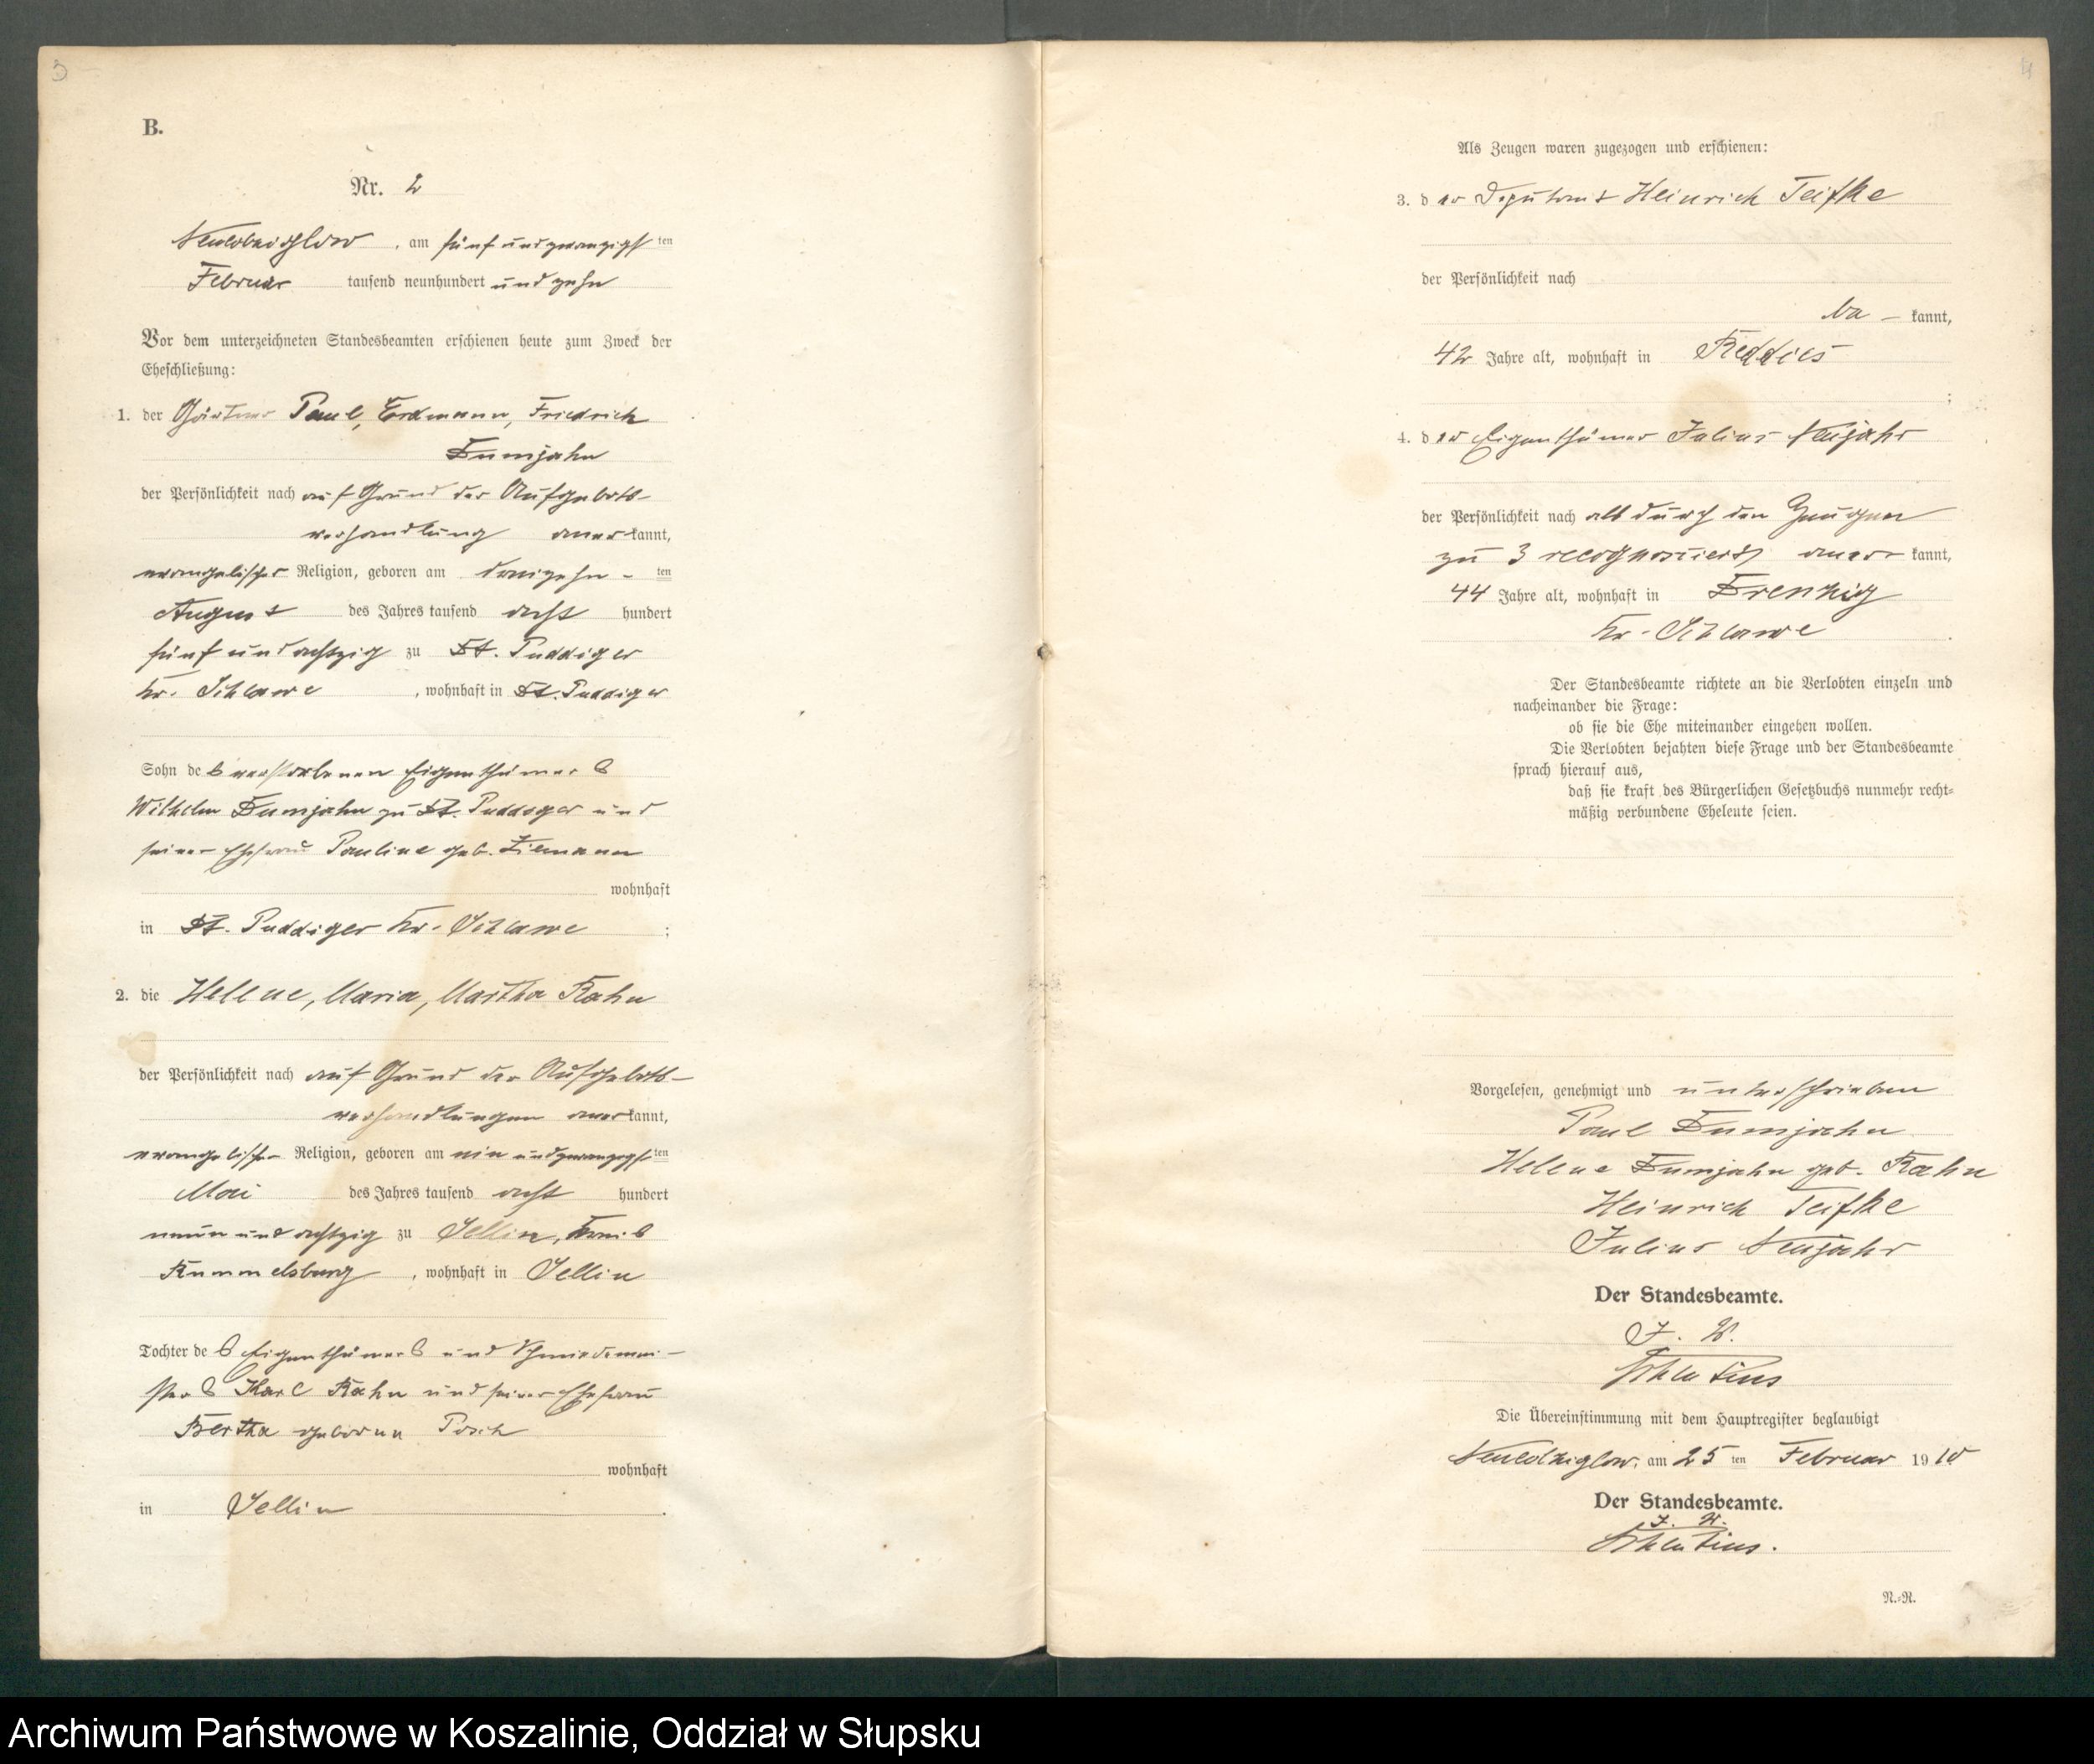 3
B.
Nr. 2
Neukolziglow, am fünfundzwanzigsten
Februar tausend neunhundert und zehn
Vor dem unterzeichneten Standesbeamten erschienen heute zum Zweck der
Eheschließung:
1. der Gärtner Paul, Erdmann, Friedrich
Dumjahn
der Persönlichkeit nach auf Grund der Aufgebots-
verhandlung anerkannt,
evangelischer Religion, geboren am dreizehn-ten
August des Jahres tausend acht hundert
fünf und achtzig zu Dt. Puddiger
Kr. Schlawe, wohnhaft in Dt. Puddiger
Sohn des verstorbenen Eigenthümers
Wilhelm Dumjahn zu Dt. Puddiger und
seiner Ehefrau Pauline geb. Ziemann
wohnhaft
in Dt. Puddiger Kr. Schlawe;
2. die Helene, Maria, Martha Rahn
der Persönlichkeit nach auf Grund der Aufgebots-
verhandlungen anerkannt,
evangelischer Religion, geboren am ein undzwanzigsten
Mai des Jahres tausend acht hundert
neun und achtzig zu Sellin, Kreis
Rummelsburg, wohnhaft in Sellin
Tochter des Eigenthümers und Schmiedemei-
sters Karl Rahn und seiner Ehefrau
Bertha geborne Posch
wohnhaft
in Sellin.
4
Als Zeugen waren zugezogen und erschienen:
3. der Deputant Heinrich Teifke
der Persönlichkeit nach
be-kannt,
42 Jahre alt, wohnhaft in Reddies
;
4. der Eigenthümer Julius Neujahr
der Persönlichkeit nach als durch den Zeugen
zu 3 recognosciert, anerkannt,
44 Jahre alt, wohnhaft in Drenzig
Kr. Schlawe.
Der Standesbeamte richtete an die Verlobten einzeln und
nacheinander die Frage:
ob sie die Ehe miteinander eingehen wollen.
Die Verlobten bejahten diese Frage und der Standesbeamte
sprach hierauf aus,
daß sie kraft des Bürgerlichen Gesetzbuchs nunmehr recht-
mäßig verbundene Eheleute seien.
Vorgelesen, genehmigt und unterschrieben
Paul Dumjahn
Helene Dumjahn geb. Rahn
Heinrich Teifke
Julius Neujahr
Der Standesbeamte.
J. V.
Die Übereinstimmung mit dem Hauptregister beglaubigt
Neukolziglow, am 25 ten Februar 1910
Der Standesbeamte.
J. V.
N.-R.
Archiwum Państwowe w Koszalinie, Oddział w Słupsku